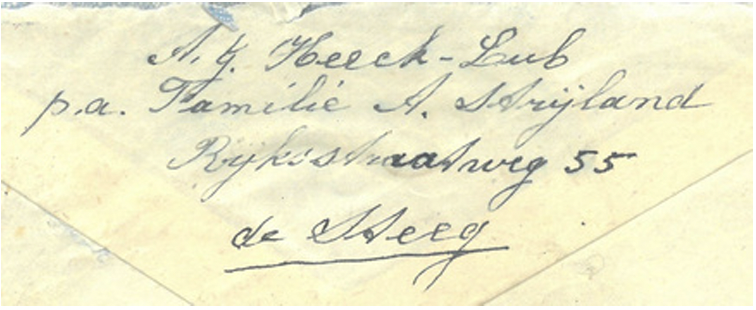 A. G. Heeck-Lub
p.a. Familie A. Strijland
Rijksstraatweg 55
de Steeg